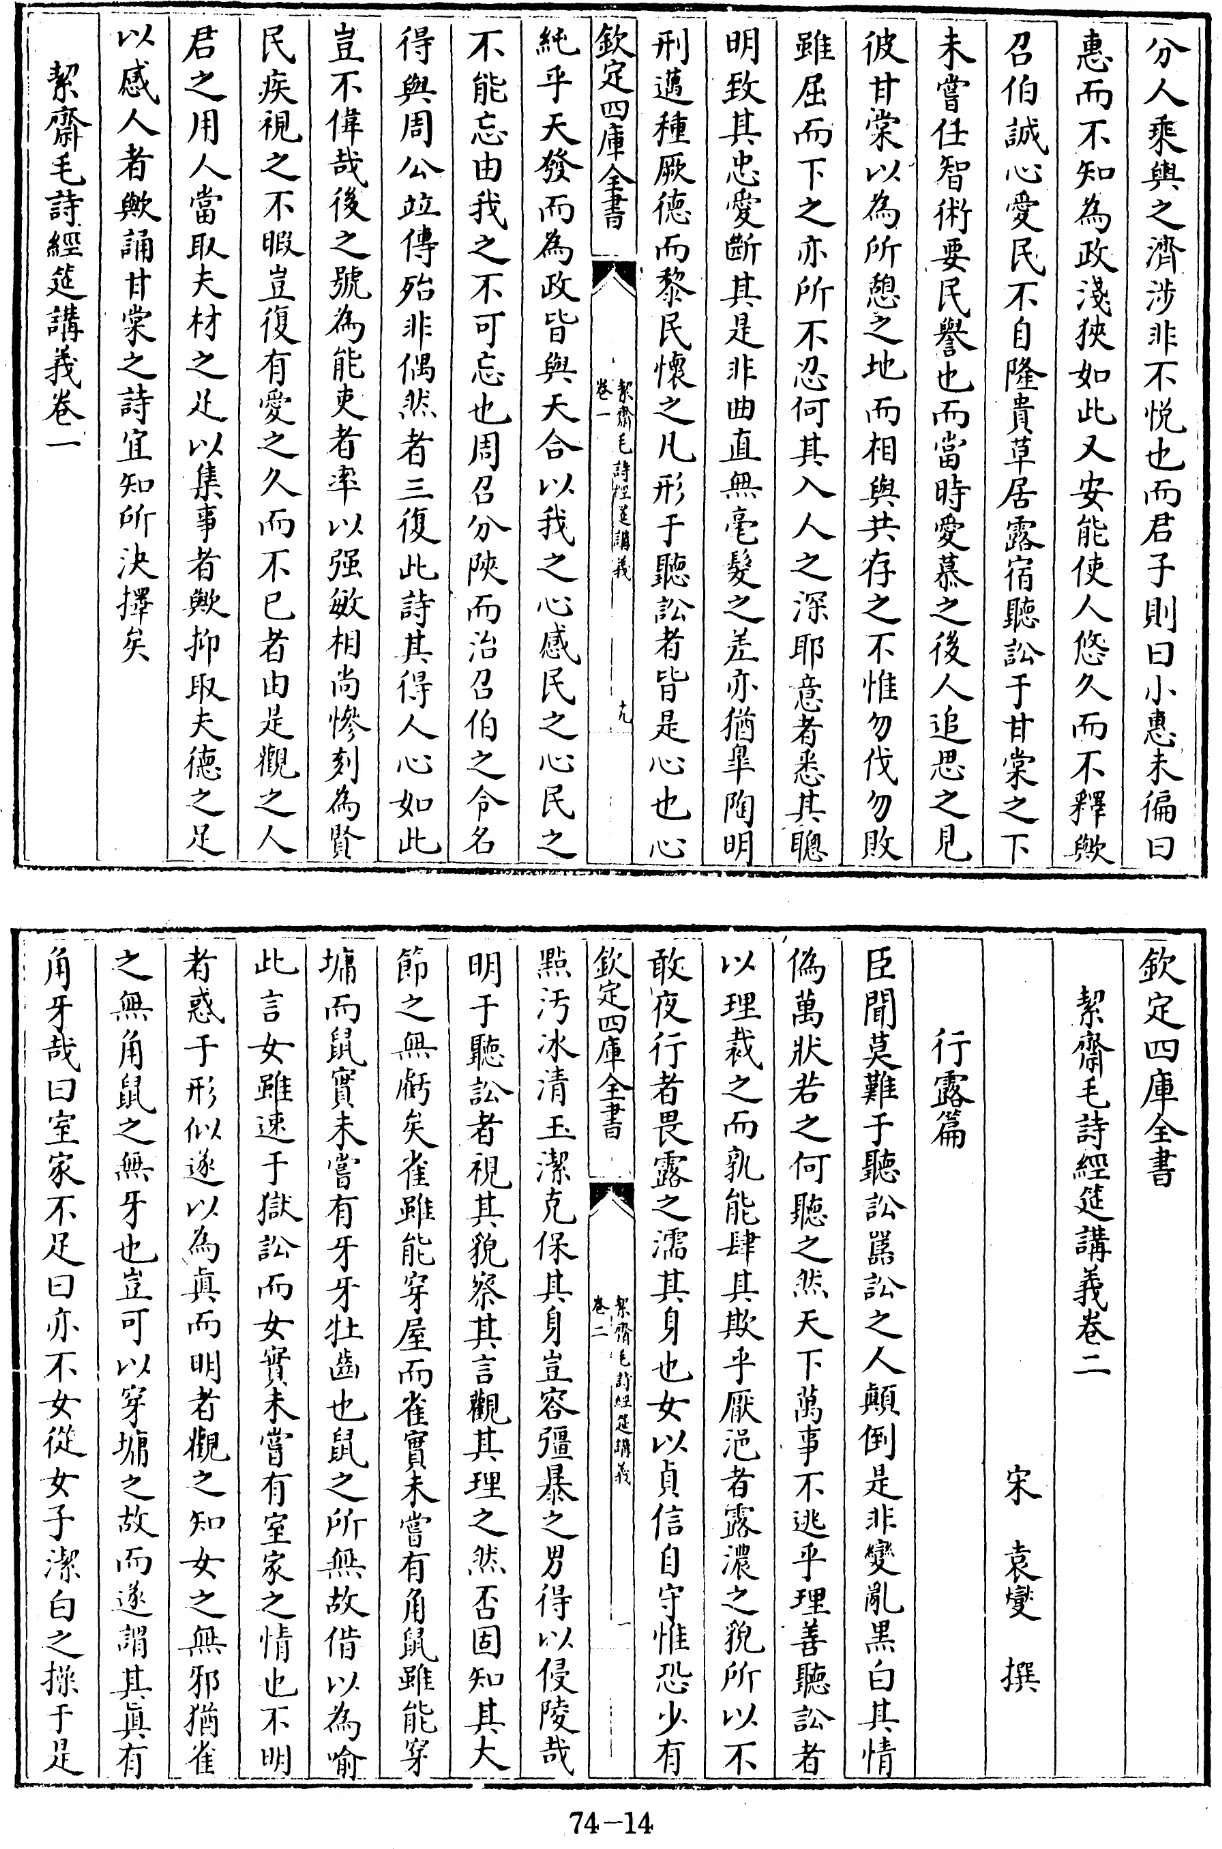 分人乘輿之濟涉非不悅也而君子則曰小惠未徧曰
惠而不知為政淺狹如此又安能使人悠久而不釋歟
召伯誠心愛民不自隆貴草居露宿聽訟于甘棠之下
未嘗任智術要民譽也而當時愛慕之後人追思之見
彼甘棠以為所憩之地而相與共存之不惟勿伐勿敗
雖屈而下之亦所不忍何其入人之深耶意者悉其聰
明致其忠愛斷其是非曲直無毫髮之差亦猶臯陶明
刑邁種厥德而黎民懷之凡形于聽訟者皆是心也心
欽定四庫全書
絜齋毛詩經筵講義
卷一
十九
純乎天發而為政皆與天合以我之心感民之心民之
不能忘由我之不可忘也周召分陝而治召伯之令名
得與周公竝傳殆非偶然者三復此詩其得人心如此
豈不偉哉後之號為能吏者率以强敏相尚慘刻為賢
民疾視之不暇豈復有愛之久而不已者由是觀之人
君之用人當取夫材之足以集事者歟抑取夫德之足
以感人者歟誦甘棠之詩宜知所決擇矣
絜齋毛詩經筵講義卷一
欽定四庫全書
絜齋毛詩經筵講義卷二
宋 袁燮 撰
行露篇
臣聞莫難于聽訟嚚訟之人顛倒是非變亂黑白其情
偽萬狀若之何聽之然天下萬事不逃乎理善聽訟者
以理裁之而孰能肆其欺乎厭浥者露濃之貌所以不
敢夜行者畏露之濡其身也女以貞信自守惟恐少有
欽定四庫全書
絜齋毛詩經筵講義
卷二
一
點汚冰清玉潔克保其身豈容彊暴之男得以侵陵哉
明于聽訟者視其貌察其言觀其理之然否固知其大
節之無虧矣雀雖能穿屋而雀實未嘗有角鼠雖能穿
墉而鼠實未嘗有牙牙牡齒也鼠之所無故借以為喻
此言女雖速于獄訟而女實未嘗有室家之情也不明
者惑于形似遂以為眞而明者觀之知女之無邪猶雀
之無角鼠之無牙也豈可以穿墉之故而遂謂其眞有
角牙哉曰室家不足曰亦不女從女子潔白之操于是
74-14